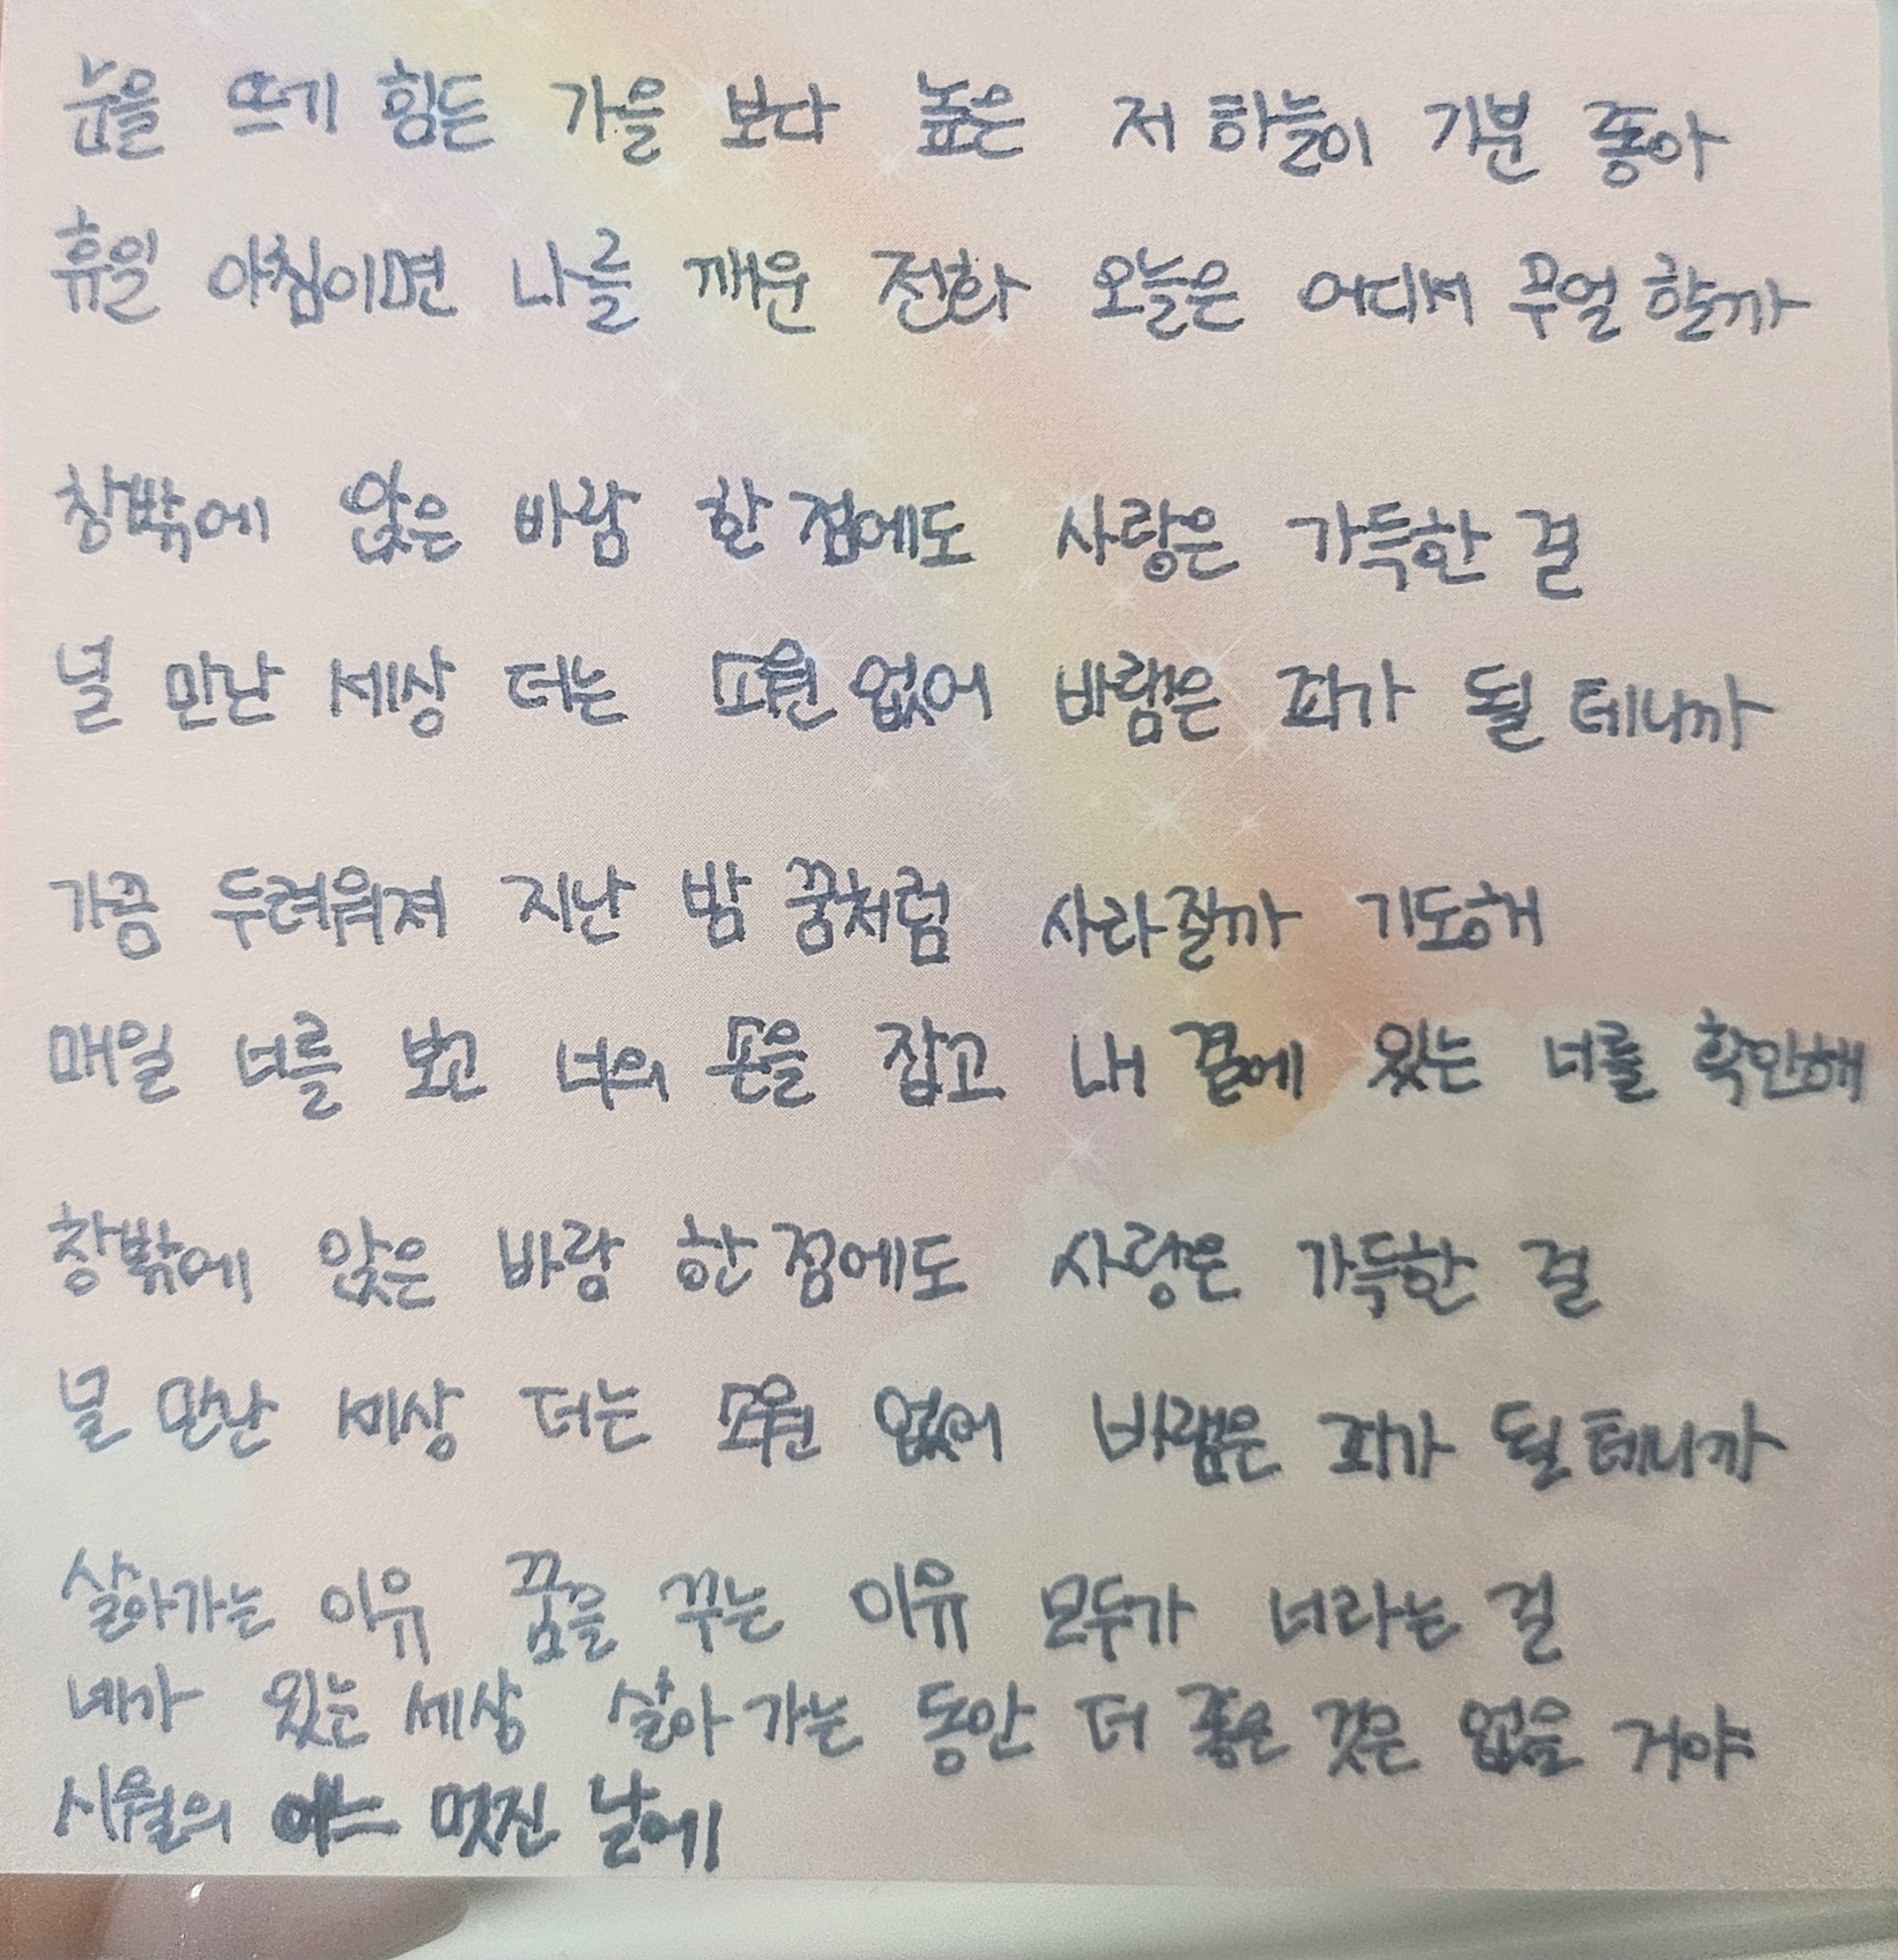 눈을 뜨기 힘든 가을 보다 높은 저 하늘이 기분 좋아
휴일 아침이면 나를 깨운 전화 오늘은 어디서 무얼 할까
창밖에 앉은 바람 한 점에도 사랑은 가득한 걸
널 만난 세상 더는 소원 없어 바램은 죄가 될 테니까
가끔 두려워져 지난 밤 꿈처럼 사라질까 기도해
매일 너를 보고 너의 손을 잡고 내 곁에 있는 너를 확인해
창밖에 앉은 바람 한 점에도 사랑은 가득한 걸
널 만난 세상 더는 소원 없어 바램은 죄가 될 테니까
살아가는 이유 꿈을 꾸는 이유 모두가 너라는 걸
네가 있는 세상 살아 가는 동안 더 좋은 것은 없을 거야
시월의 어느 멋진 날에